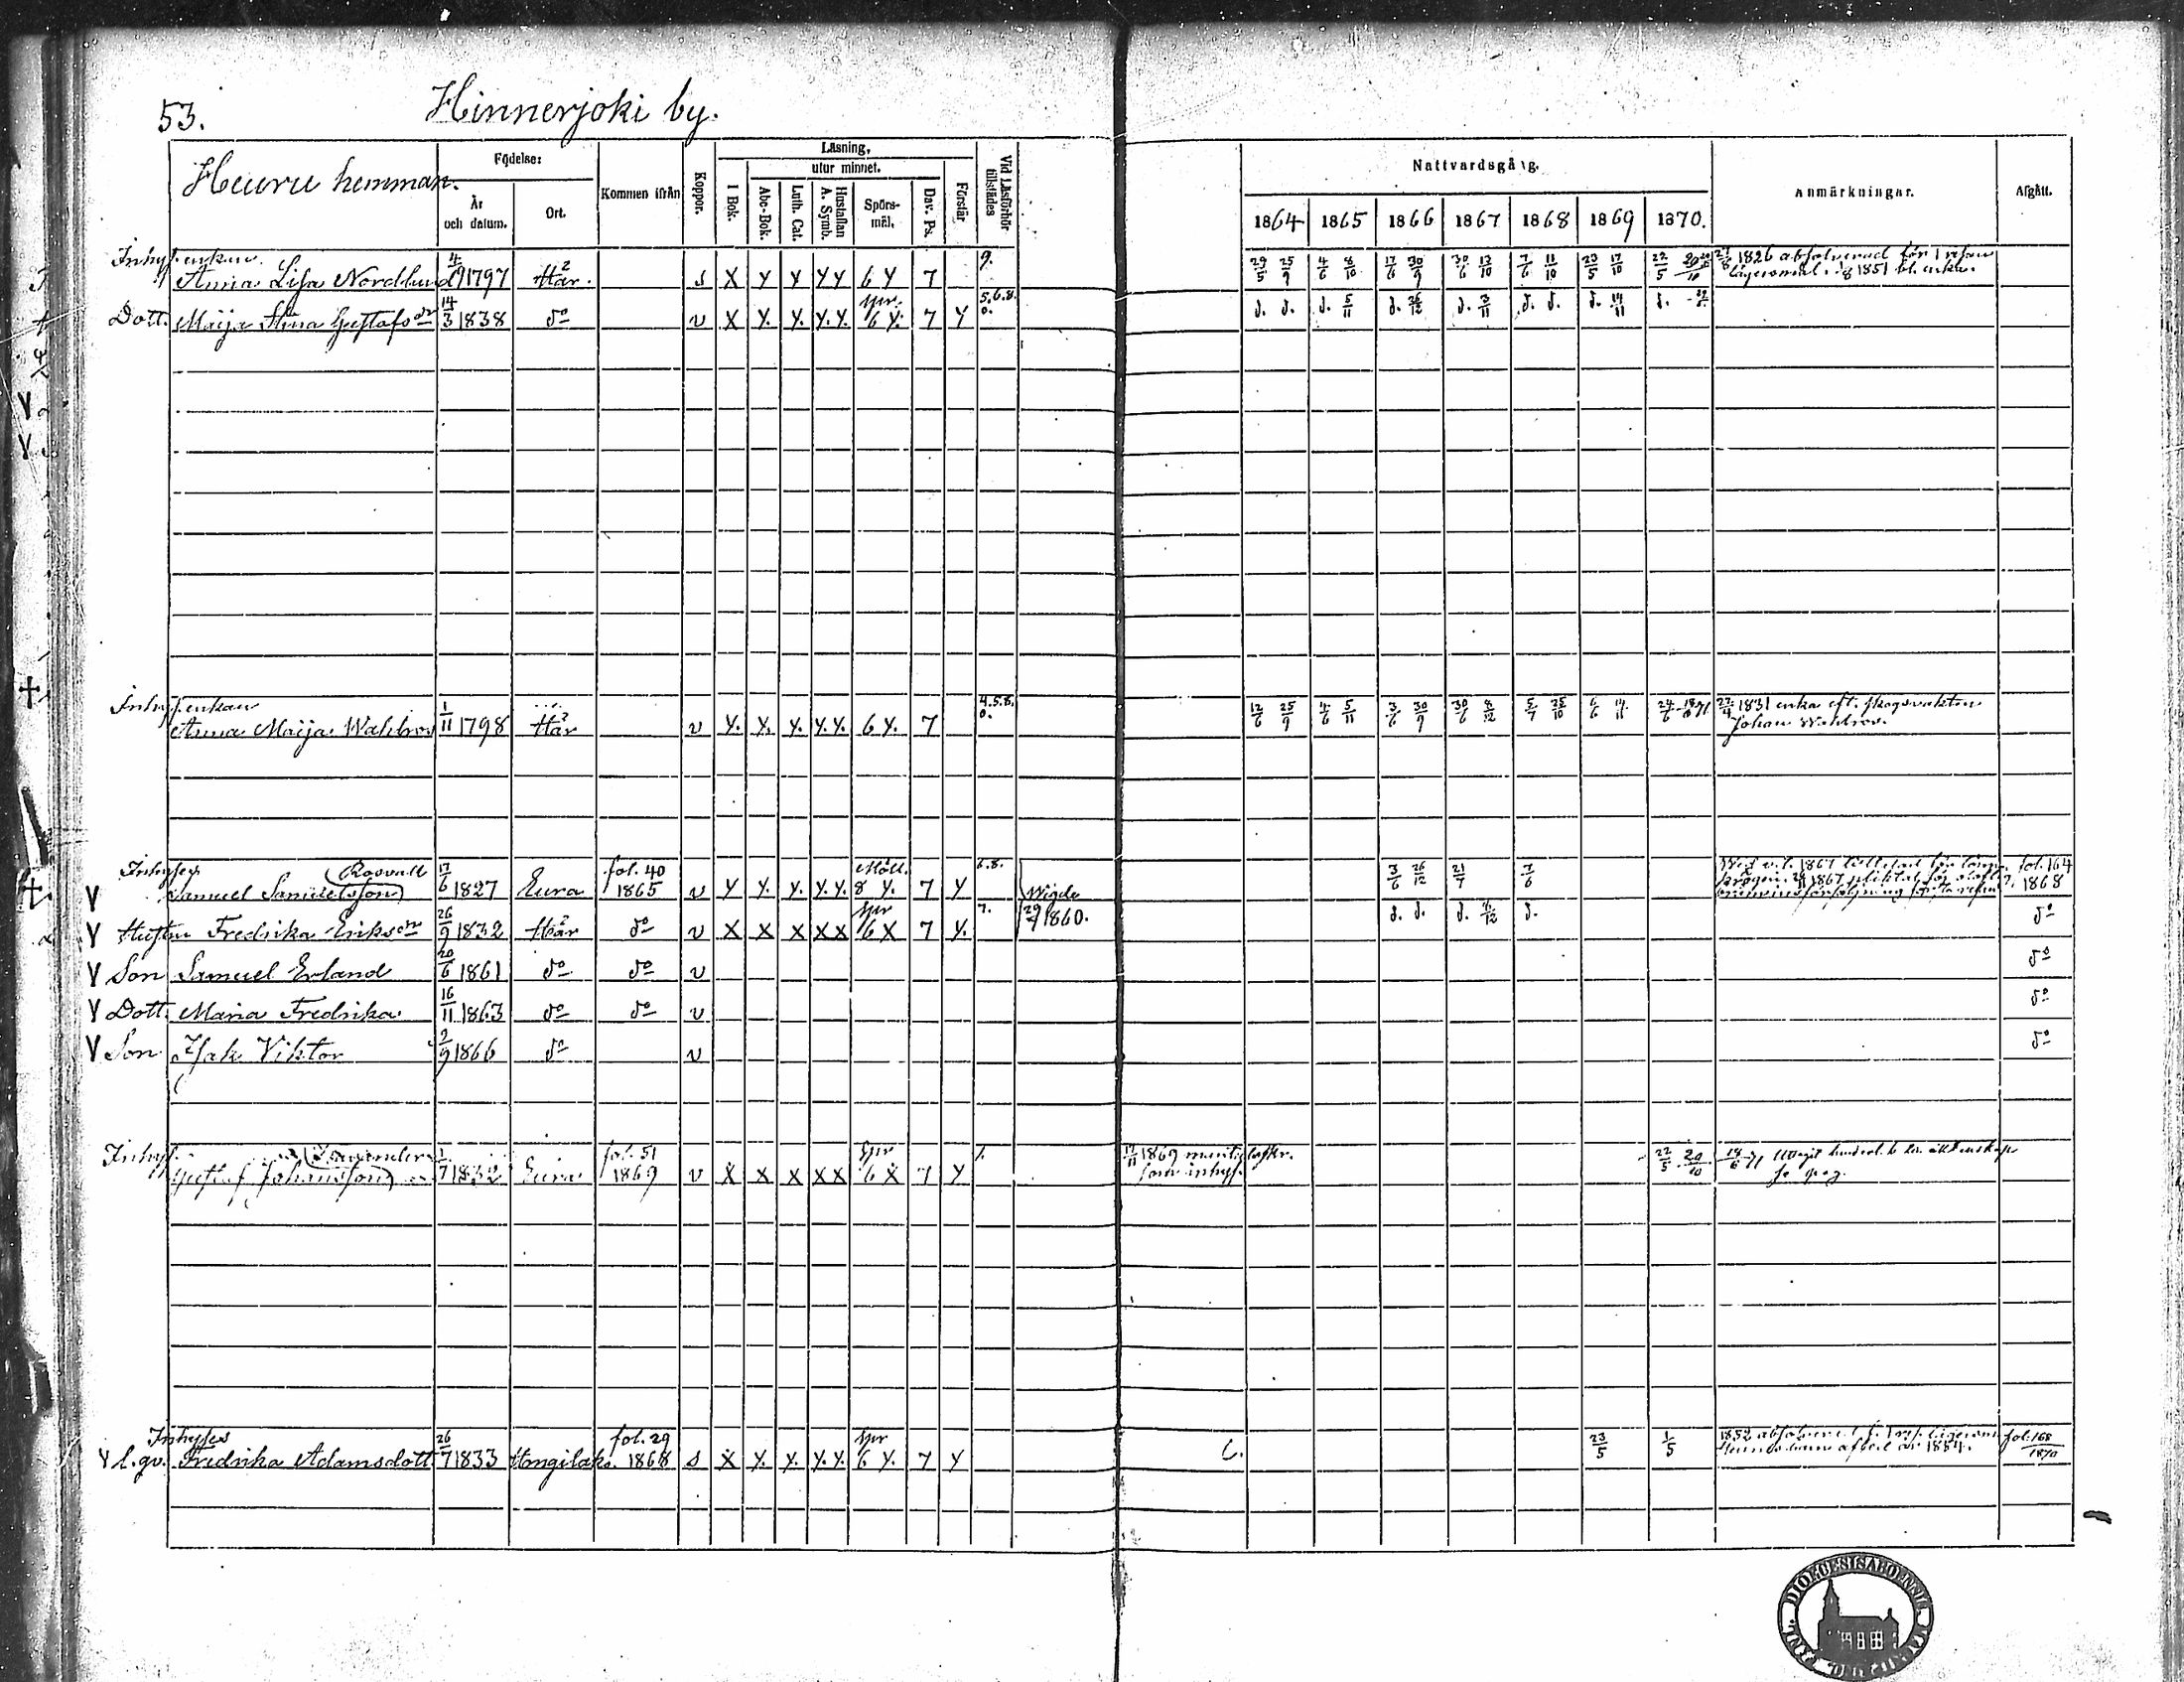 53. Hinnerjoki by.
Heuru hemman.
Födelse: År och datum. Ort.
Kommen ifrån
Koppor.
Läsning,
utur minnet.
I Bok. Abc-Bok. Luth. Cat. Hustaflan A. Symb. Spörsmål. Dav. Ps. Förstår
Vid Läsförhör tillstädes
Nattvardsgång.
1864 1865 1866 1867 1868 1869 1870.
Anmärkningar. Afgått.
Inhys. enkan
Anna Lisa Nordlund 4/9 1797 Här s X Y Y Y Y 6 Y 7 9. 29/5 25/9 4/6 8/10 17/6 30/9 30/6 13/10 7/6 11/10 23/5 17/10 22/5 1826 absolverad för 1 resan
lägersmål. 1851 bl. enka.
Dott. Maija Stina Gustafsdr 14/3 1838 do v X Y. Y. Y. Y. spr. 6 Y. 7 Y 5.6.8. 0. d. d. d. 5/11 d. 26/12 d. 3/11 d. d. d. 14/11 d.
Inhys. enkan
Anna Maija Wahlroos 1/11 1798 Här v Y. Y. Y. Y. Y. 6 Y. 7 4.5.8. 0. 12/6 25/9 4/6 5/11 3/6 30/9 30/6 8/12 5/7 25/10 24/6 1831 enka eft. skogsvakten
Johan Wahlroos.
Inhyses (Rosvall
Samuel Samuelsson) 17/6 1827 Eura fol. 40 1865 v Y Y. Y. Y. Y. 8 Y. 7 Y 6.8. Wigde 3/6 26/12 21/7 7/6 fol. 164 1868
Hustru Fredrika Eriksdr 26/9 1832 Här do v X X X X X spr 6 X 7 Y. 7. 29/7 1860. d. d. d. d. do
Son Samuel Erland 20/6 1861 do do v do
Dott. Maria Fredrika 16/11 1863 do do v do
Son Isak Viktor 2/9 1866 do v do
Inhys.
Gustaf Johansson) 1/7 1832 Eura fol. 51 1869 v X X X X X spr 6 X 7 Y 1. 17/11 1869
som inhys. 22/5 20/10
Inhyses
l. qv. Fredrika Adamsdott 26/7 1833 Hongilaks fol. 29 1868 s X Y. Y. Y. Y. spr 6 Y. 7 Y C. 23/5 1/5 1852
år 1854. fol. 168 1870